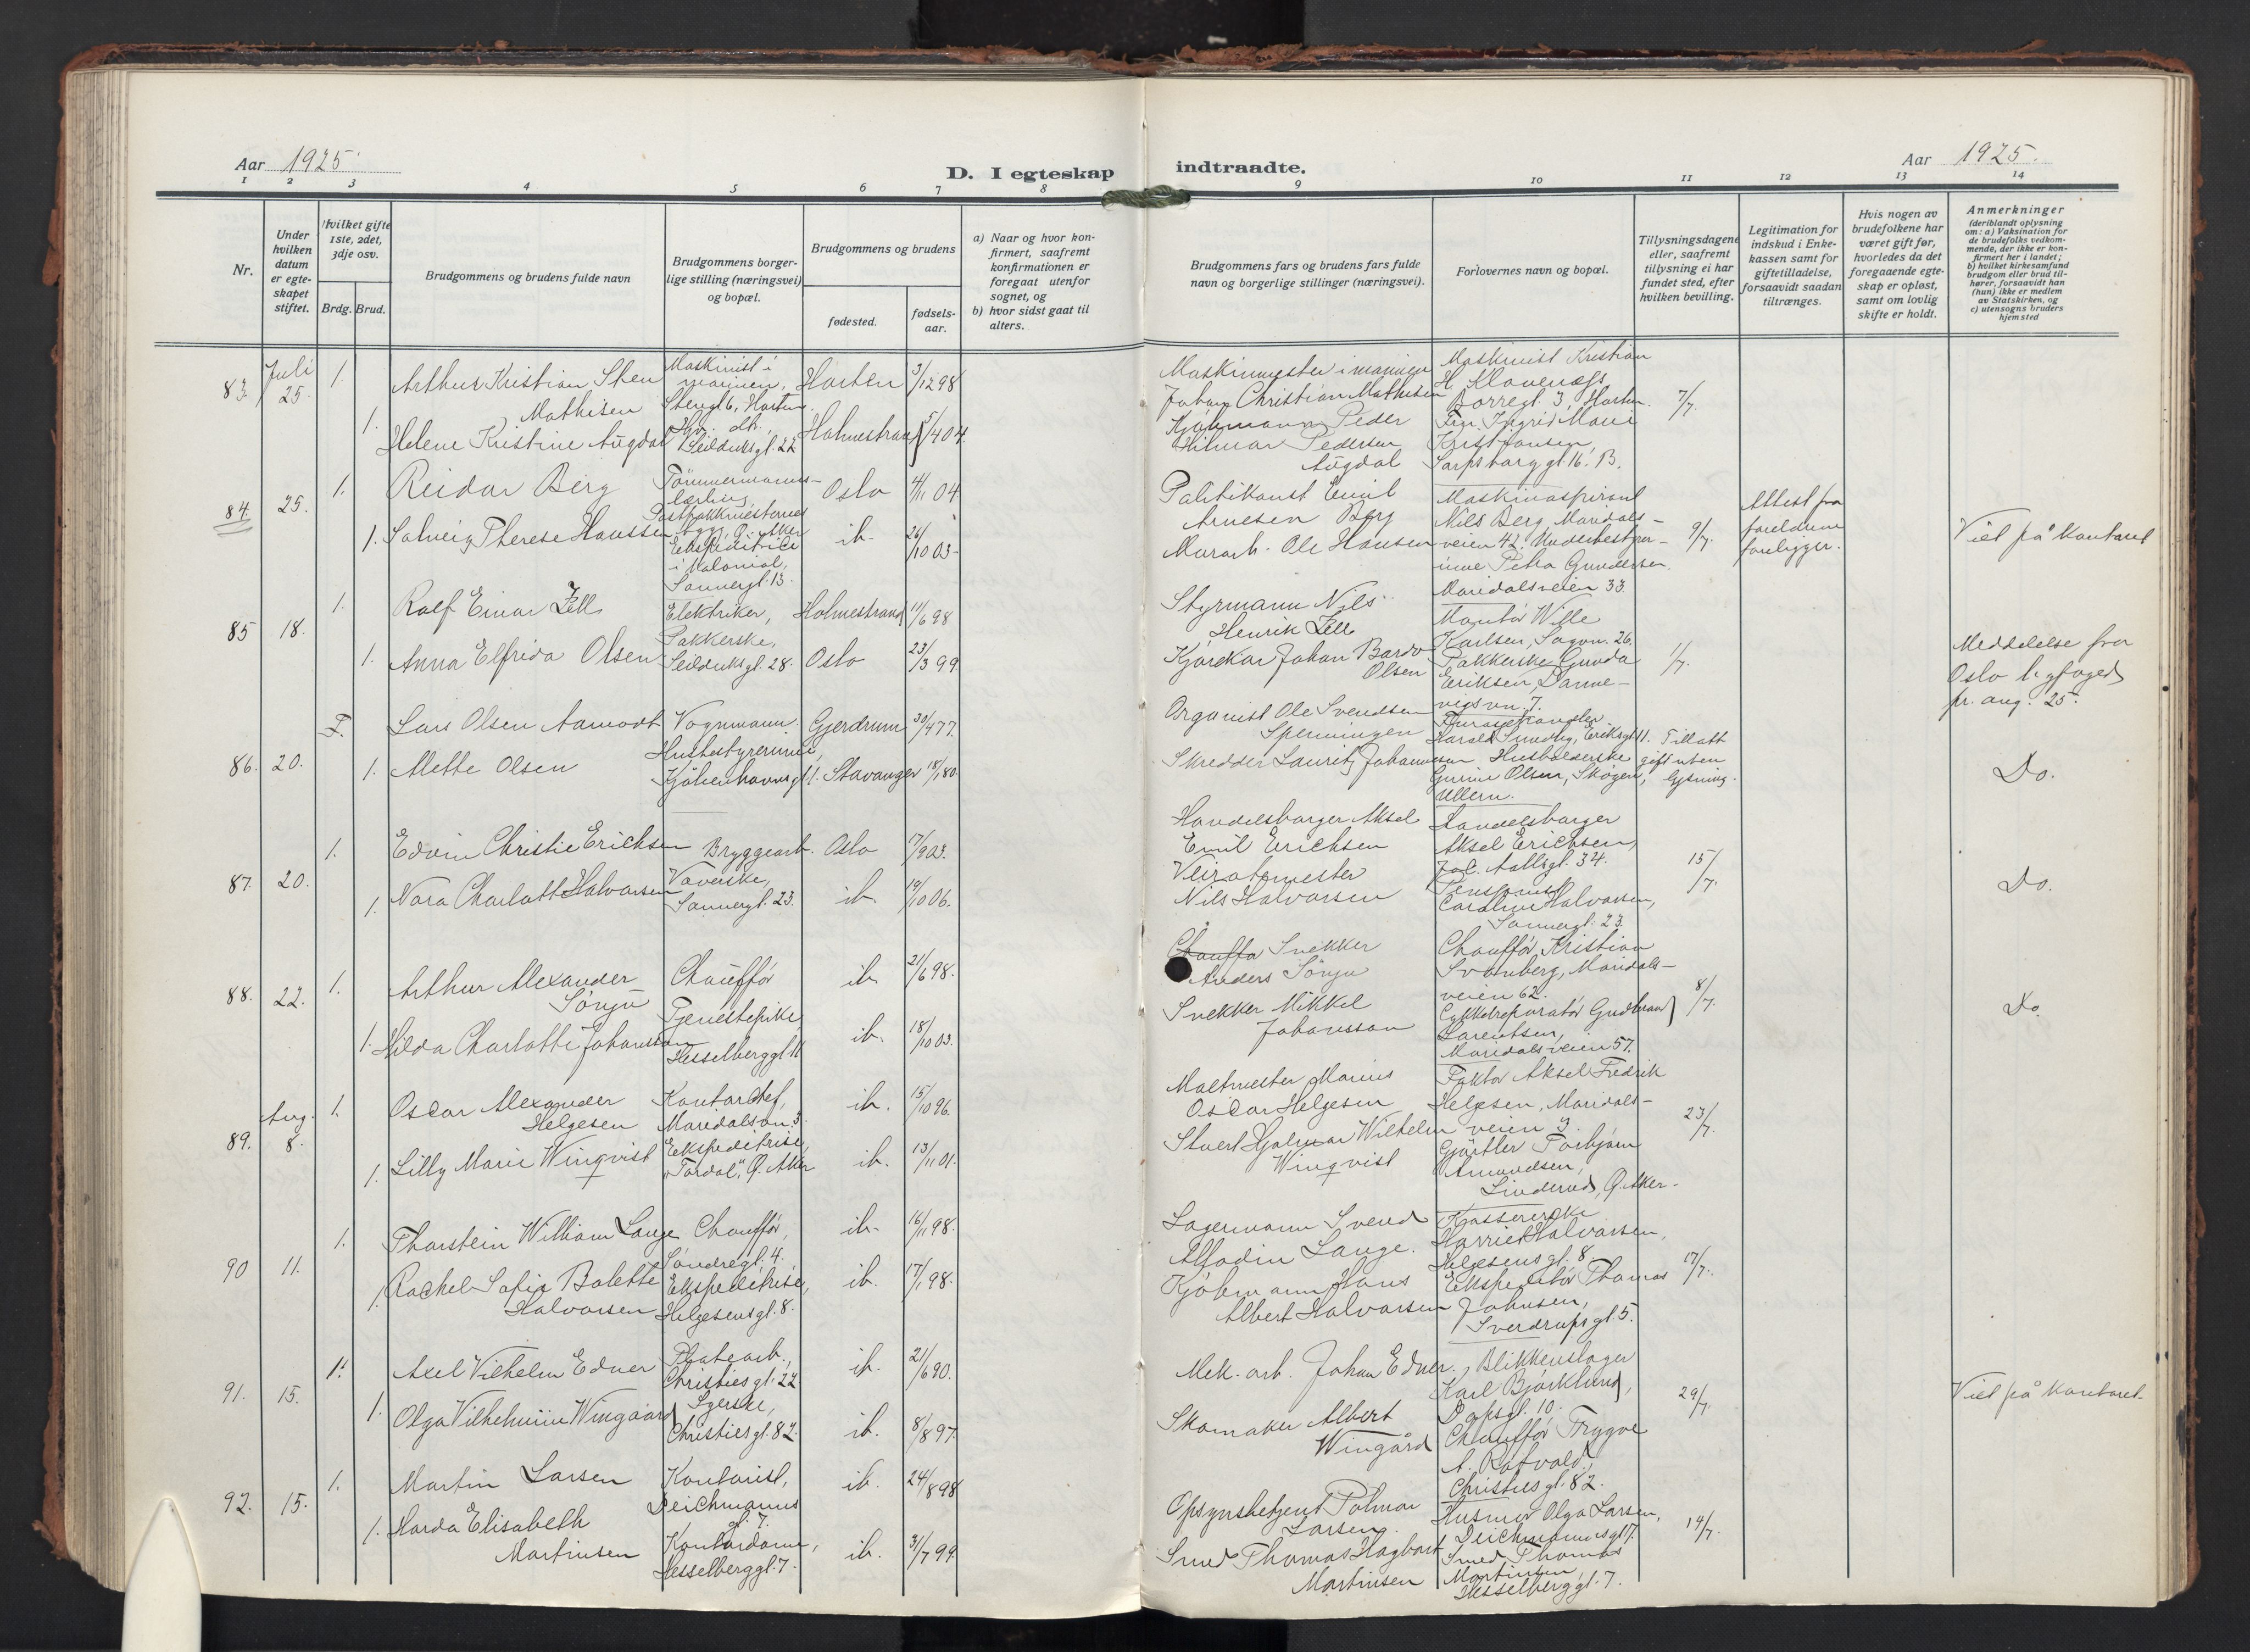 Aar 1925. D. I egteskap indtraadte. Aar 1925.
1 2 3 4 5 6 7 8 9 10 11 12 13 14
Nr.
Under hvilken datum er egteskapet stiftet.
Hvilket gifte 1ste, 2det, 3dje osv.
Brdg. Brud.
Brudgommens og brudens fulde navn
Brudgommens borgerlige stilling (næringsvei) og bopæl.
Brudgommens og brudens
fødested.
fødselsaar.
a) Naar og hvor konfirmert, saafremt konfirmationen er foregaat utenfor sognet, og
b) hvor sidst gaat til alters.
Brudgommens fars og brudens fars fulde navn og borgerlige stillinger (næringsvei).
Forlovernes navn og bopæl.
Tillysningsdagene eller, saafremt tillysning ei har fundet sted, efter hvilken bevilling.
Legitimation for indskud i Enkekassen samt for giftetilladelse, forsaavidt saadan tiltrænges.
Hvis nogen av brudefolkene har været gift før, hvorledes da det foregaaende egteskap er opløst, samt om lovlig skifte er holdt.
Anmerkninger
(deriblandt oplysning om: a) Vaksination for de brudefolks vedkommende, der ikke er konfirmert her i landet;
b) hvilket kirkesamfund brudgom eller brud tilhører, forsaavidt han (hun) ikke er medlem av Statskirken, og
c) utensogns bruders hjemsted
83. Juli 25. 1. Arthur Kristian Sten Mathisen
Maskinist i marinen, Stengt. 6, Horten.
Horten 3/12 98
Maskinmester i marinen Johan Christian Mathisen
Maskinist Kristian H. Klavenæss Borregt. 3, Horten.
7/7.
1. Helene Kristine Augdal
Seilduksgt. 22
Holmestrand 5/4 04.
Kjøbmann Peder Hilmar Pedersen Augdal
Frk. Ingrid Marie Kristiansen Sarpsborggt. 16. B.
84. 25. 1. Reidar Berg
Tömmermanns-lærling,
Oslo 4/11 04
Emil Arnesen Berg
Maskinaspirant Nils Berg, Maridalsveien 42.
9/7.
Attest fra foreldrene foreligger.
Viet på kontoret
1. Solveig Therese Hanssen
Ekspeditrice i kolonial, Sannergt. 13.
ib. 26/10 03
Murarb. Ole Hansen
Petra Gundersen Maridalsveien 33.
85 18. 1. Rolf Einar Zell
Elektriker,
Holmestrand 11/6 98
Styrmann Nils Henrik Zell
Montör Wille Karlsen, Sagvn. 26.
1/7.
Meddelelse fra Oslo byfoged pr. aug. 25.
1. Anna Elfrida Olsen
Pakkerske, Seilduksgt. 28.
Oslo 23/3 99
Kjörekar Johan Olsen
Pakkerske Gunda Eriksen, Dannevigsvn. 7.
86. 20. Lars Olsen Aamodt
Vognmann.
Gjerdrum 30/4 77.
Organist Ole Svendsen
Harald Smedby, Eriksgt. 11.
Tillatt gift uten lysning.
Do.
1. Mette Olsen
Husbestyrerinne, Kjöbenhavnsgt. 11.
Stavanger 18/1 80.
Skredder Lauritz Johannesen
Husholderske Gunine Olsen, Skögen, Ullern.
87. 20. 1. Edvin Christie Erichsen
Bryggearb.
Oslo 17/9 03.
Handelsborger Aksel Emil Erichsen
Handelsborger Aksel Erichsen, Jac. Aallsgt. 34.
15/7.
Do.
1. Nora Charlotte Halvorsen
Væverske, Sannergt. 23.
ib. 19/10 06.
Nils Halvorsen
Caroline Halvorsen, Sannergt. 23.
88. 22. 1. Arthur Alexander Sörnju
Chauffør
ib. 21/6 98.
Chauffø Snekker Anders Sörnju
Chauffør Kristian Svanberg, Maridalsveien 62.
8/7.
Do.
1. Hilda Charlotte Johansson
Tjenestepike, Hesselberggt. 11
ib. 18/10 03.
Snekker Mikkel Johansson
Cykkelreparatör Gudbrand Larentsen, Maridalsveien 57.
89. Aug. 8. 1. Oscar Alexander Helgesen
Kontorchef, Maridalsvn. 3.
ib. 15/10 96.
Maltmester Marius Oscar Helgesen
Faktor Aksel Fredrik Helgesen, Maridalsveien 3.
23/7.
1. Lilly Marie Winqvist
Ekspeditrise, "Tordal", Ø. Aker
ib. 13/11 01.
Stuert Hjalmar Wilhelm Winqvist
Gjørtler Torbjørn Amundsen, Linderud, Ø. Aker.
90 11. 1. Thorstein William Lange
Chauffør, Söndregt. 4.
ib. 16/11 98.
Lagermann Svend Lange.
Kassererske Harriet Halvorsen, Helgesensgt. 8.
17/7.
1. Rachel Sofie Bolette Halvorsen
Ekspeditrise, Helgesensgt. 8.
ib. 17/1 98.
Kjöbmann Hans Albert Halvorsen
Ekspeditör Thomas Johnsen, Sverdrupsgt. 5.
91. 15. 1. Axel Vilhelm Edner
Platearb., Christiesgt. 22
ib. 21/6 90.
Mek. arb. Johan Edner.
Blikkenslager Karl Bjørklund, Dopsgt. 10.
29/7.
Viet på kontoret.
1. Olga Vilhelmine Wingaard
Syerske, Christiesgt. 82.
ib. 8/8 97.
Skomaker Albert Wingård
Chauffør Trygve A. Råtvold, Christiesgt. 82.
92. 15. 1. Martin Larsen
Kontorist, Deichmanns gt. 7.
ib. 24/8 98
Opsynsbetjent Polmar Larsen.
Husmor Olga Larsen, Deichmannsgt. 7.
14/7.
1. Harda Elisabeth Martinsen
Kontordame, Hesselberggt. 7.
ib. 31/7 99.
Smed Thomas Hagbart Martinsen
Smed Thomas Martinsen, Hesselberggt. 7.